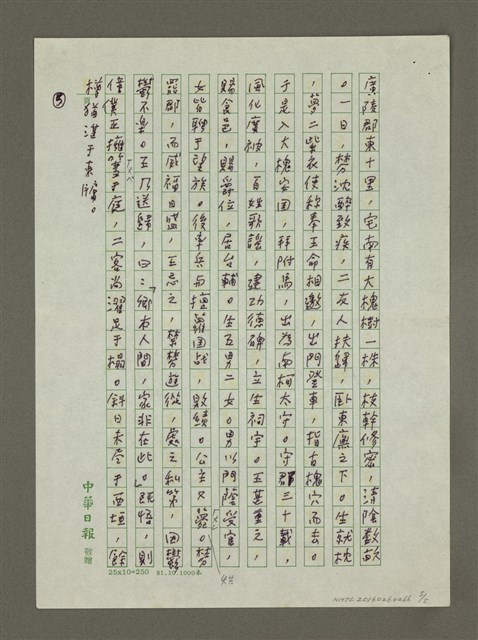 廣陵郡東十里，宅南有大槐樹一株，枝幹修密，清陰數畝
。一日，棼沈醉致疾，二友人扶歸，臥東廡之下。生就枕
，夢二紫衣使者奉王命相邀，出門登車，指古槐穴而去。
于是入大槐安国，拜附馬，出為南柯太守。守郡三十載，
風化廣被，百姓歌謠，建功德碑，立生祠宇。王甚重之，
賜食邑，賜爵位，居台輔。生五男二女。男以門蔭受官，
女皆聘于望族。後率兵与擅蘿国战，敗績。公主又薨。棼
罷郡，而威福日盛，王忌之，禁势遊從，處之私第，因鬱
鬱不樂。王乃送歸，曰：「卿本人間，家非在此。」既悟，則
僮僕正擁篲于庭，二客尚濯足于榻。斜日未尽于西垣，餘
樽猶湛于東牖。
⑤
中華日報 敬贈
25x10=250 81.10.1000本